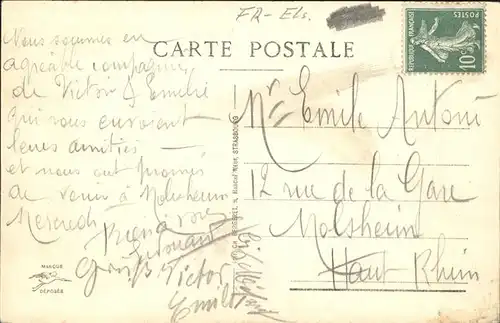 FR - Els.
CARTE POSTALE
RÉPUBLIQUE FRANÇAISE
POSTES
10c
Nous sommes en
agréable compagnie
de Victor & Emilie
qui vous envoient
leurs amitiés
et nous ont promis
de venir à Molsheim
Mercredi
Victor
Emilie
Mr Emile Antoni
12 rue de la Gare
Molsheim
Haut-Rhin
STRASBOURG
MARQUE
DÉPOSÉE